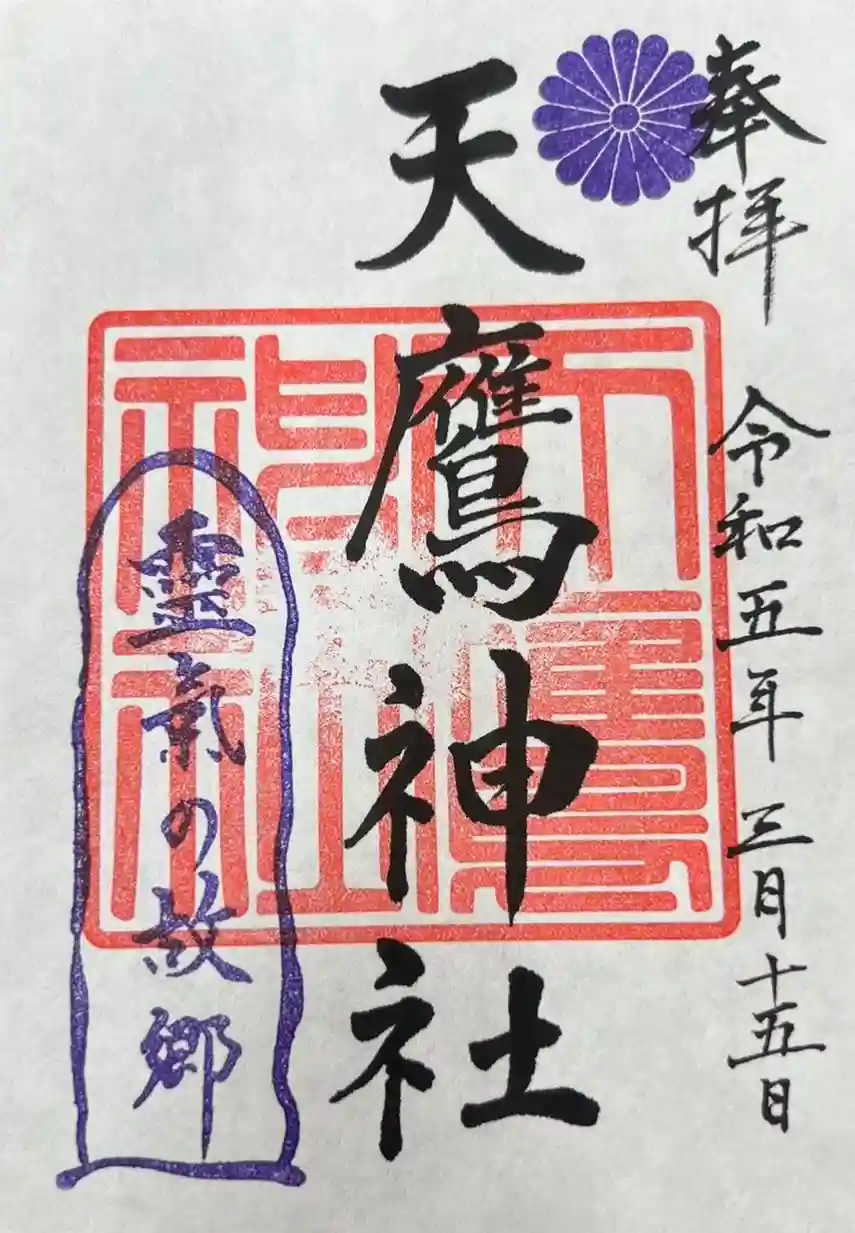 奉拝
令和五年 三月十五日
天鷹神社
天鷹神社
靈氣の故郷